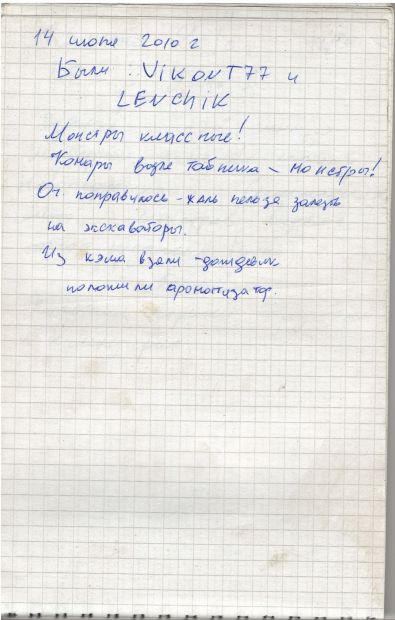 14 июня 2010 г
Были: ViKONT77 и
LENChiK
Монстры классные!
Комары возле табличка - монстры!
Оч. понравилось - жаль нельзя залезть
на экскаваторы.
Из кэша взяли - дождевик
положили ароматизатор.